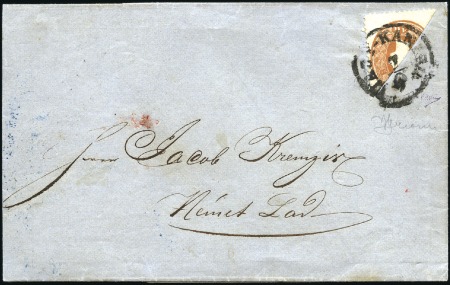 KAN
Herrn Jacob Kremzir
Német Lad